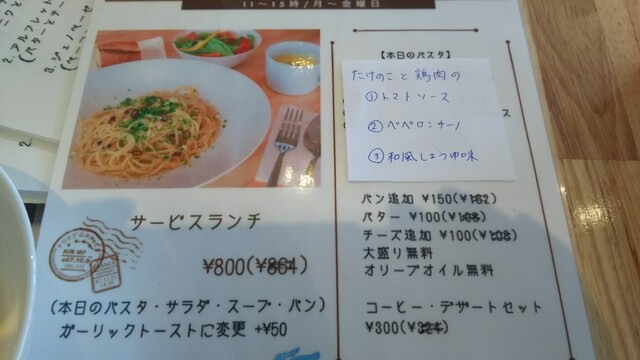 11～15時/月～金曜日
【本日のパスタ】
たけのこと鶏肉の
①トマトソース
②ペペロンチーノ
③和風しょうゆ味
サービスランチ
¥800(¥864)
(本日のパスタ・サラダ・スープ・パン)
ガーリックトーストに変更 +¥50
パン追加 ¥150(¥162)
バター ¥100(¥108)
チーズ追加 ¥100(¥108)
大盛り無料
オリーブオイル無料
コーヒー・デザートセット
¥300(¥324)